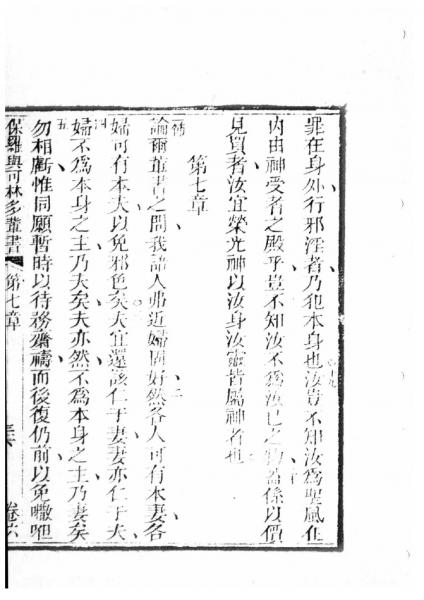 罪在身外行邪淫者乃犯本身也汝豈不知汝爲聖風在
十九
內由神受者之殿乎豈不知汝不爲汝己之物蓋係以價
見買者汝宜榮光神以汝身汝靈皆屬神者也
第七章
論爾輩書之問我語人弗近婦固好然各人可有本妻各
二
婦可有本夫以免邪色矣夫宜還該仁于妻妻亦仁于夫
三
四
婦不爲本身之主乃夫矣夫亦然不爲本身之主乃妻矣
五
勿相虧惟同願暫時以待務齋禱而後復仍前以免嗷呾
保羅與可林多輩書 第七章 卷六